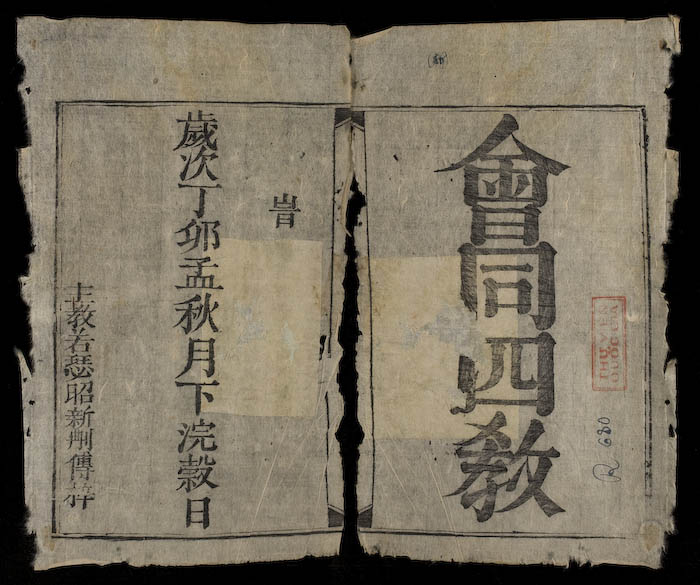 會同四教
R 680
旹
歲次丁卯孟秋月下浣穀日
主教若瑟昭新刊傳梓